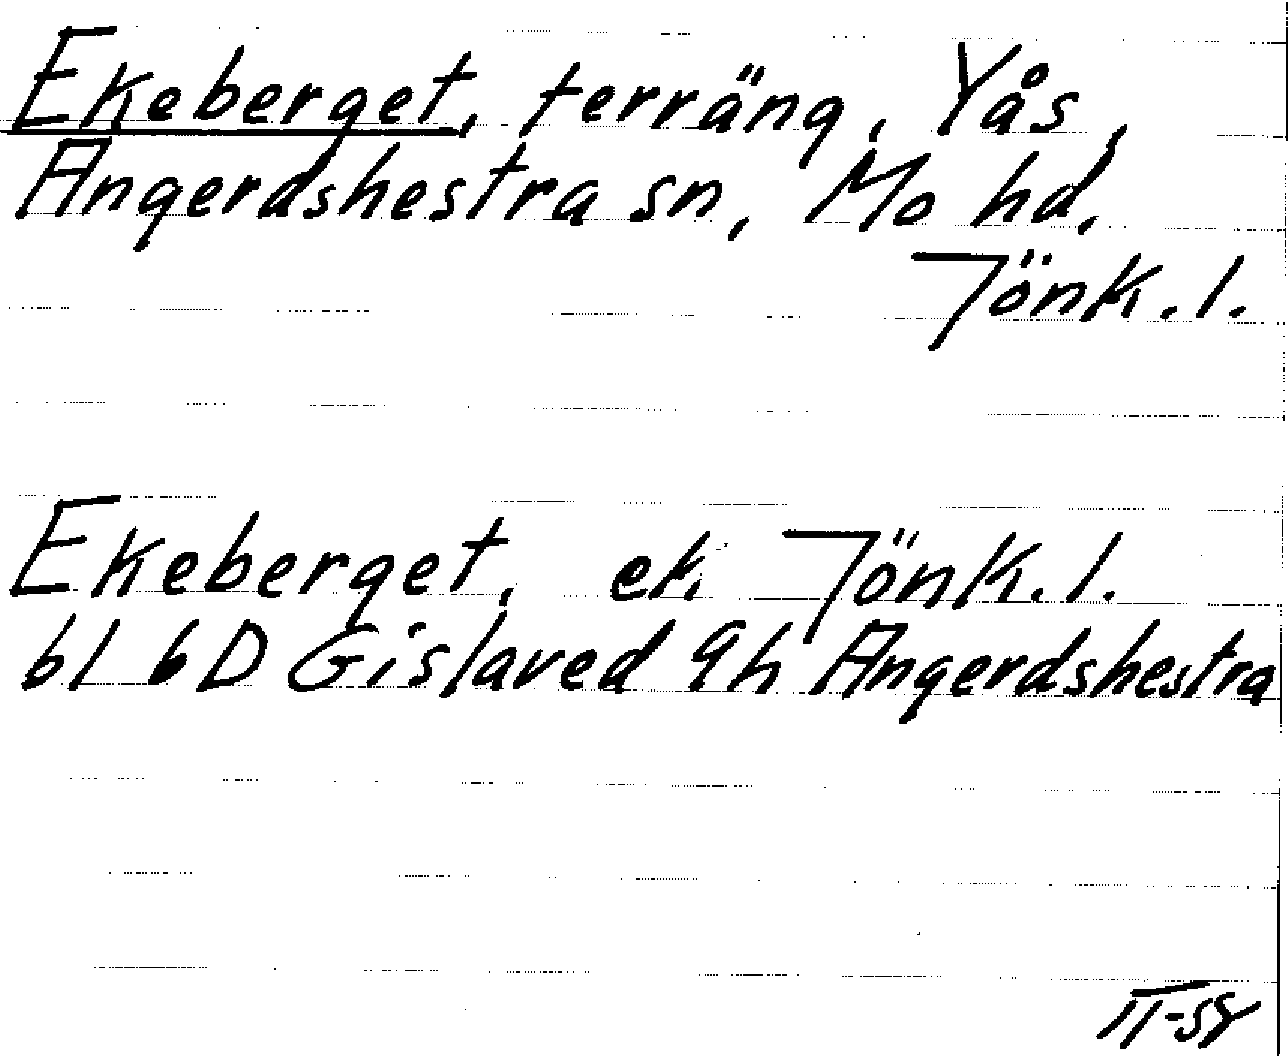 Ekeberget, terräng, Yås,
Angerdshestra sn, Mo hd,
Jönk. l.
Ekeberget, ek. Jönk. l.
bl 6D Gislaved 9h Angerdshestra
II-58